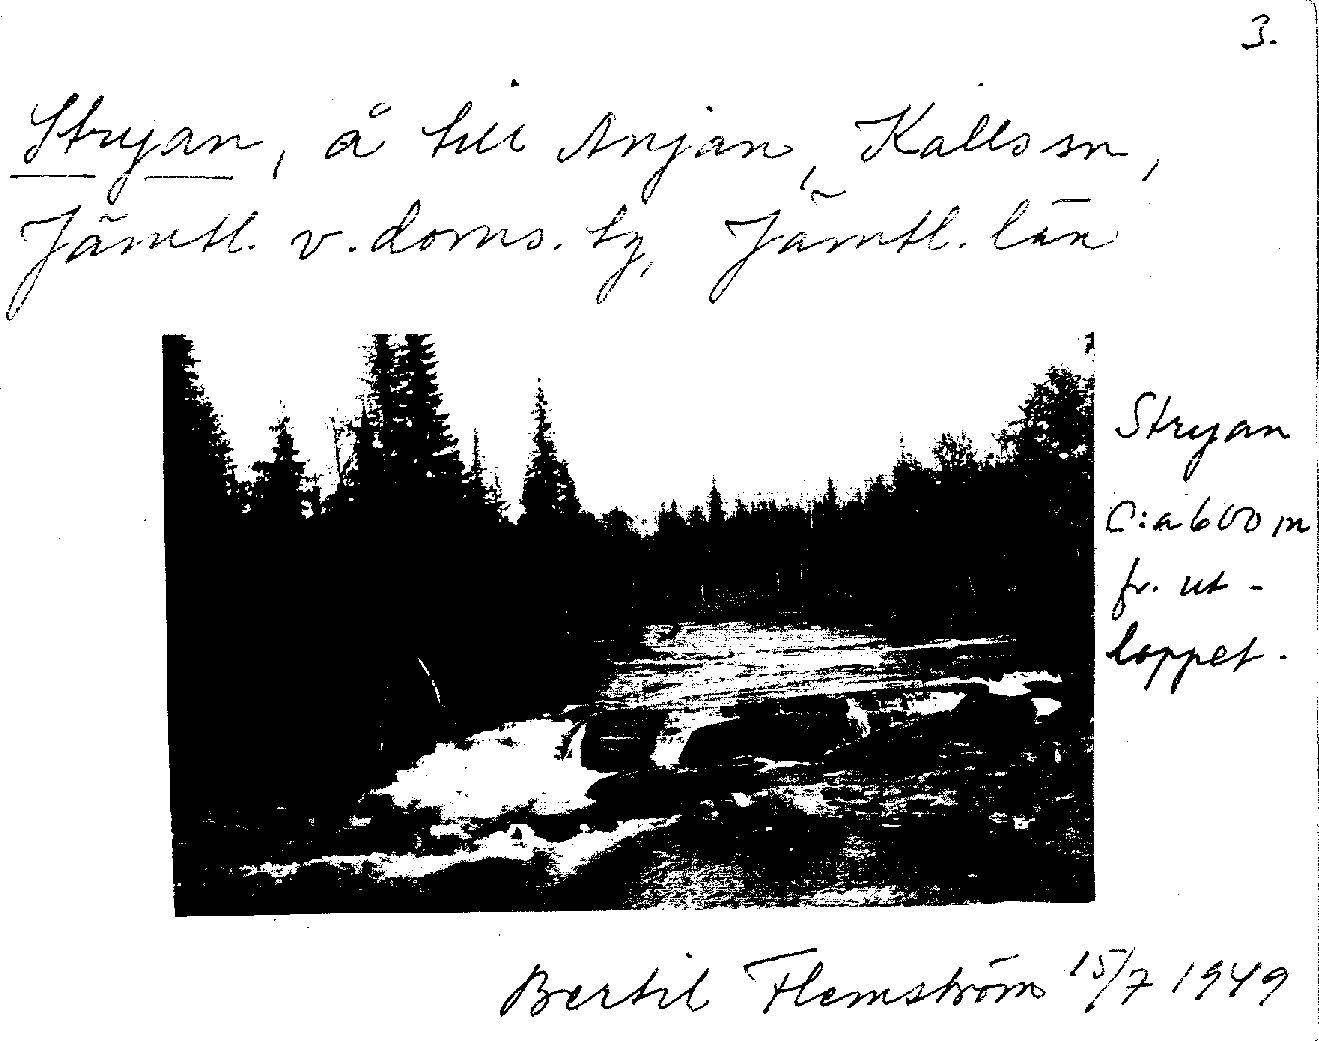 3.
Stryan, å till Anjan, Kalls sn,
Jämtl. v. doms. tg, Jämtl. län
Stryan
C:a 600 m
fr. ut-
loppet.
Bertil Flemström 15/7 1949